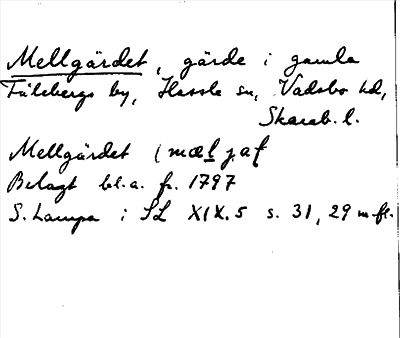 Mellgärdet, gärde i gamla
Fälebergs by, Hassle sn, Vadsbo hd,
Skarab. l.
Mellgärdet
Belagt bl.a. fr. 1797
S. Lampa i SL XIX.5 s. 31, 29 m fl.